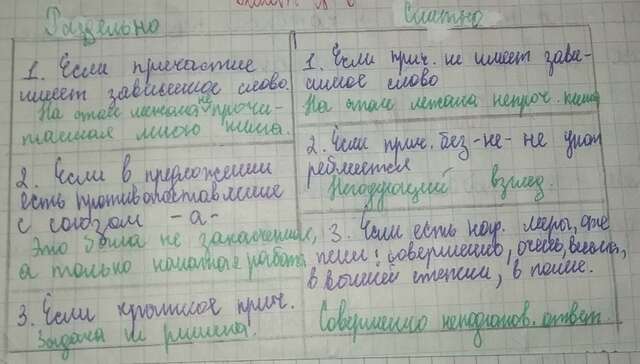 Раздельно
1. Если причастие
имеет зависимое слово.
На этом лежала не прочи-
танная мною книга.
2. Если в предложении
есть противопоставление
с союзом -а-
Это была не законченная,
а только начатая работа
3. Если краткое прич.
Задача не решена.
Слитно
1. Если прич. не имеет зави-
симое слово
На этом лежала непроч. книга
2. Если прич. без -не- не упот
ребляется
Негодующий взгляд.
3. Если есть нар. меры, сте
пени: совершенно, очень, весьма,
в высшей степени, в полне.
Совершенно неподготов. ответ.